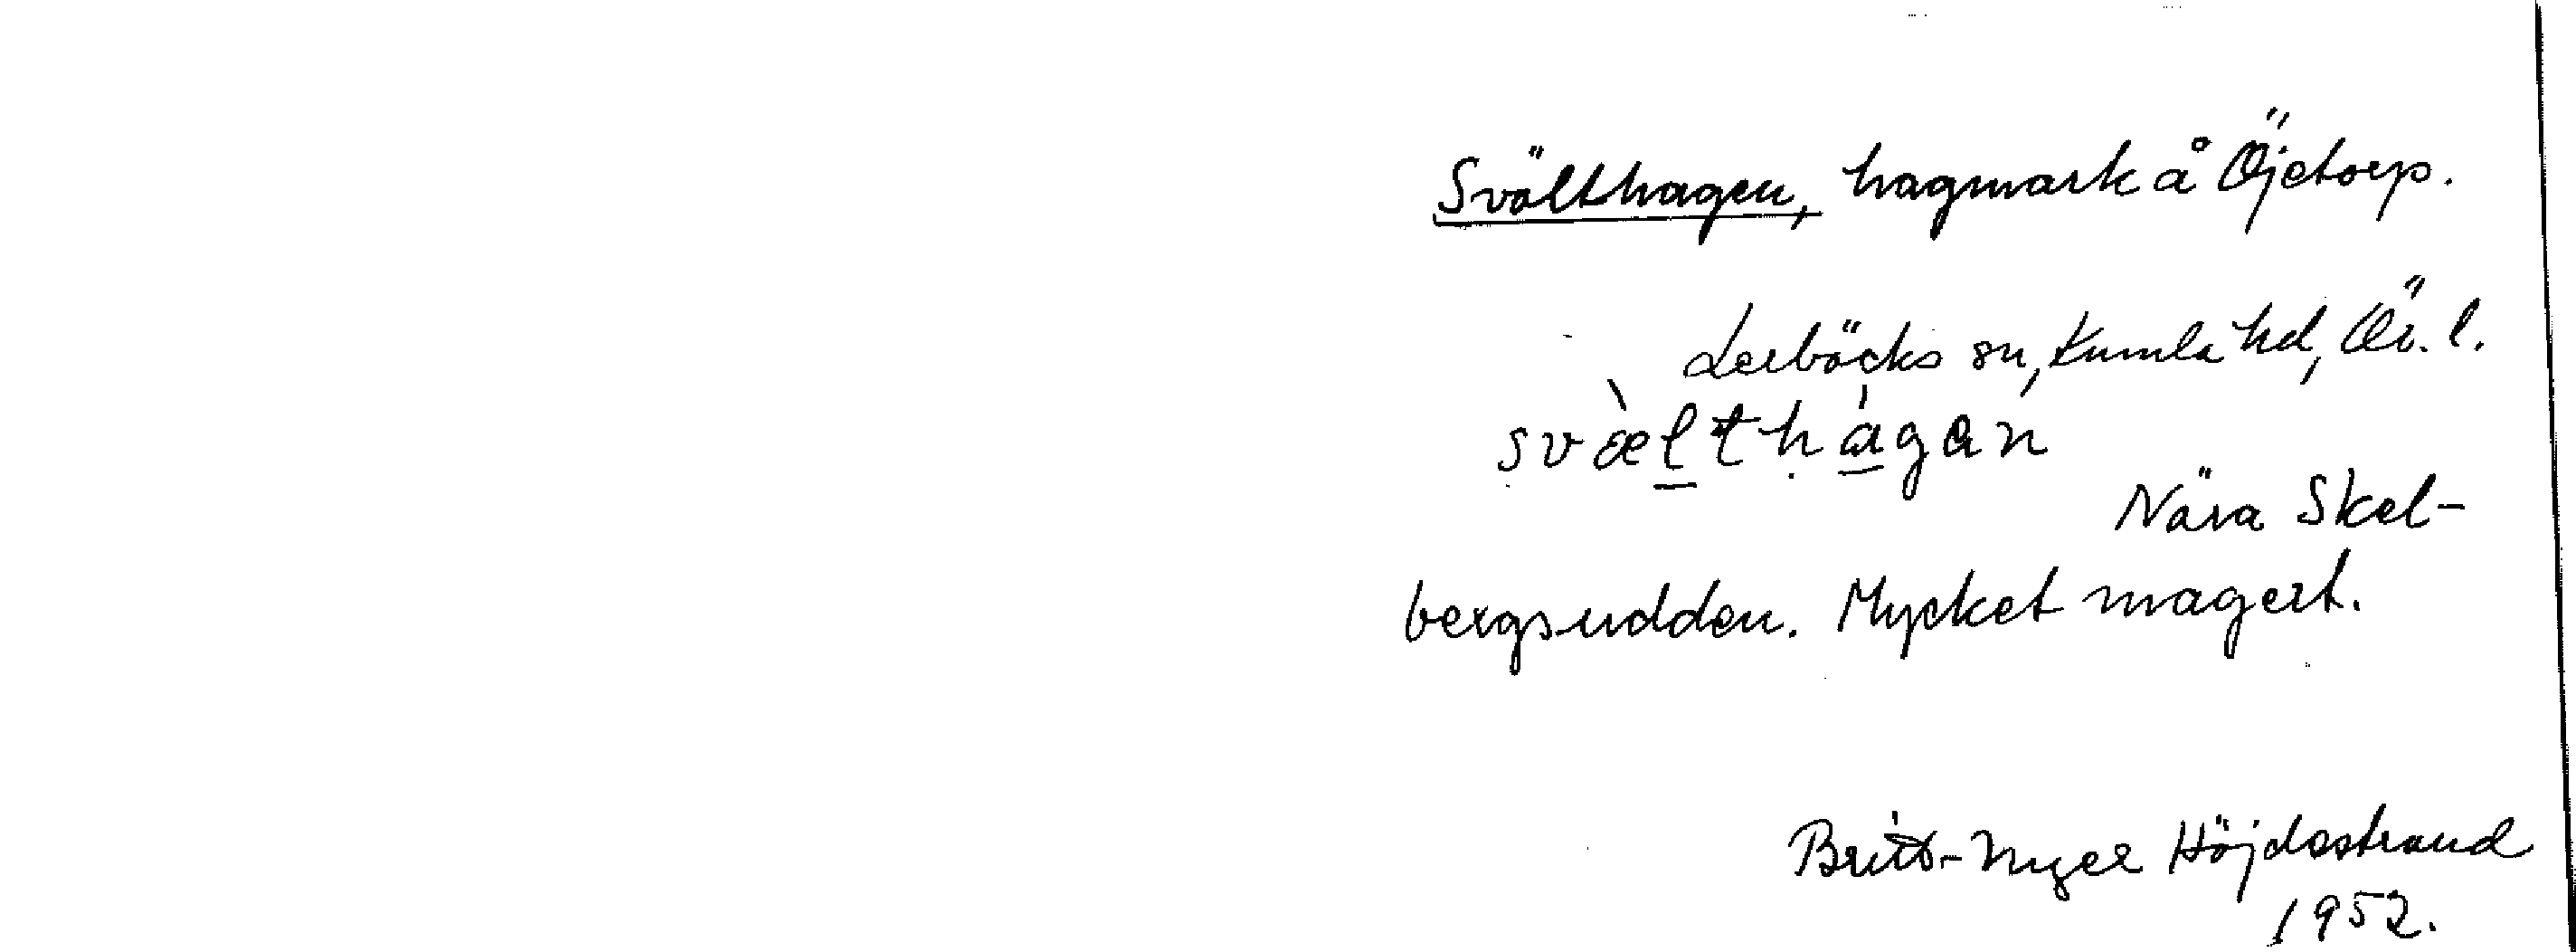 Svälthagen, hagmark å Öjetorp.
Lerbäcks sn, Kumla hd, Ör. l.
svæ̀lthàgan
Nära Skel-
bergsudden. Mycket magert.
Britt-Inger Höjdestrand
1952.